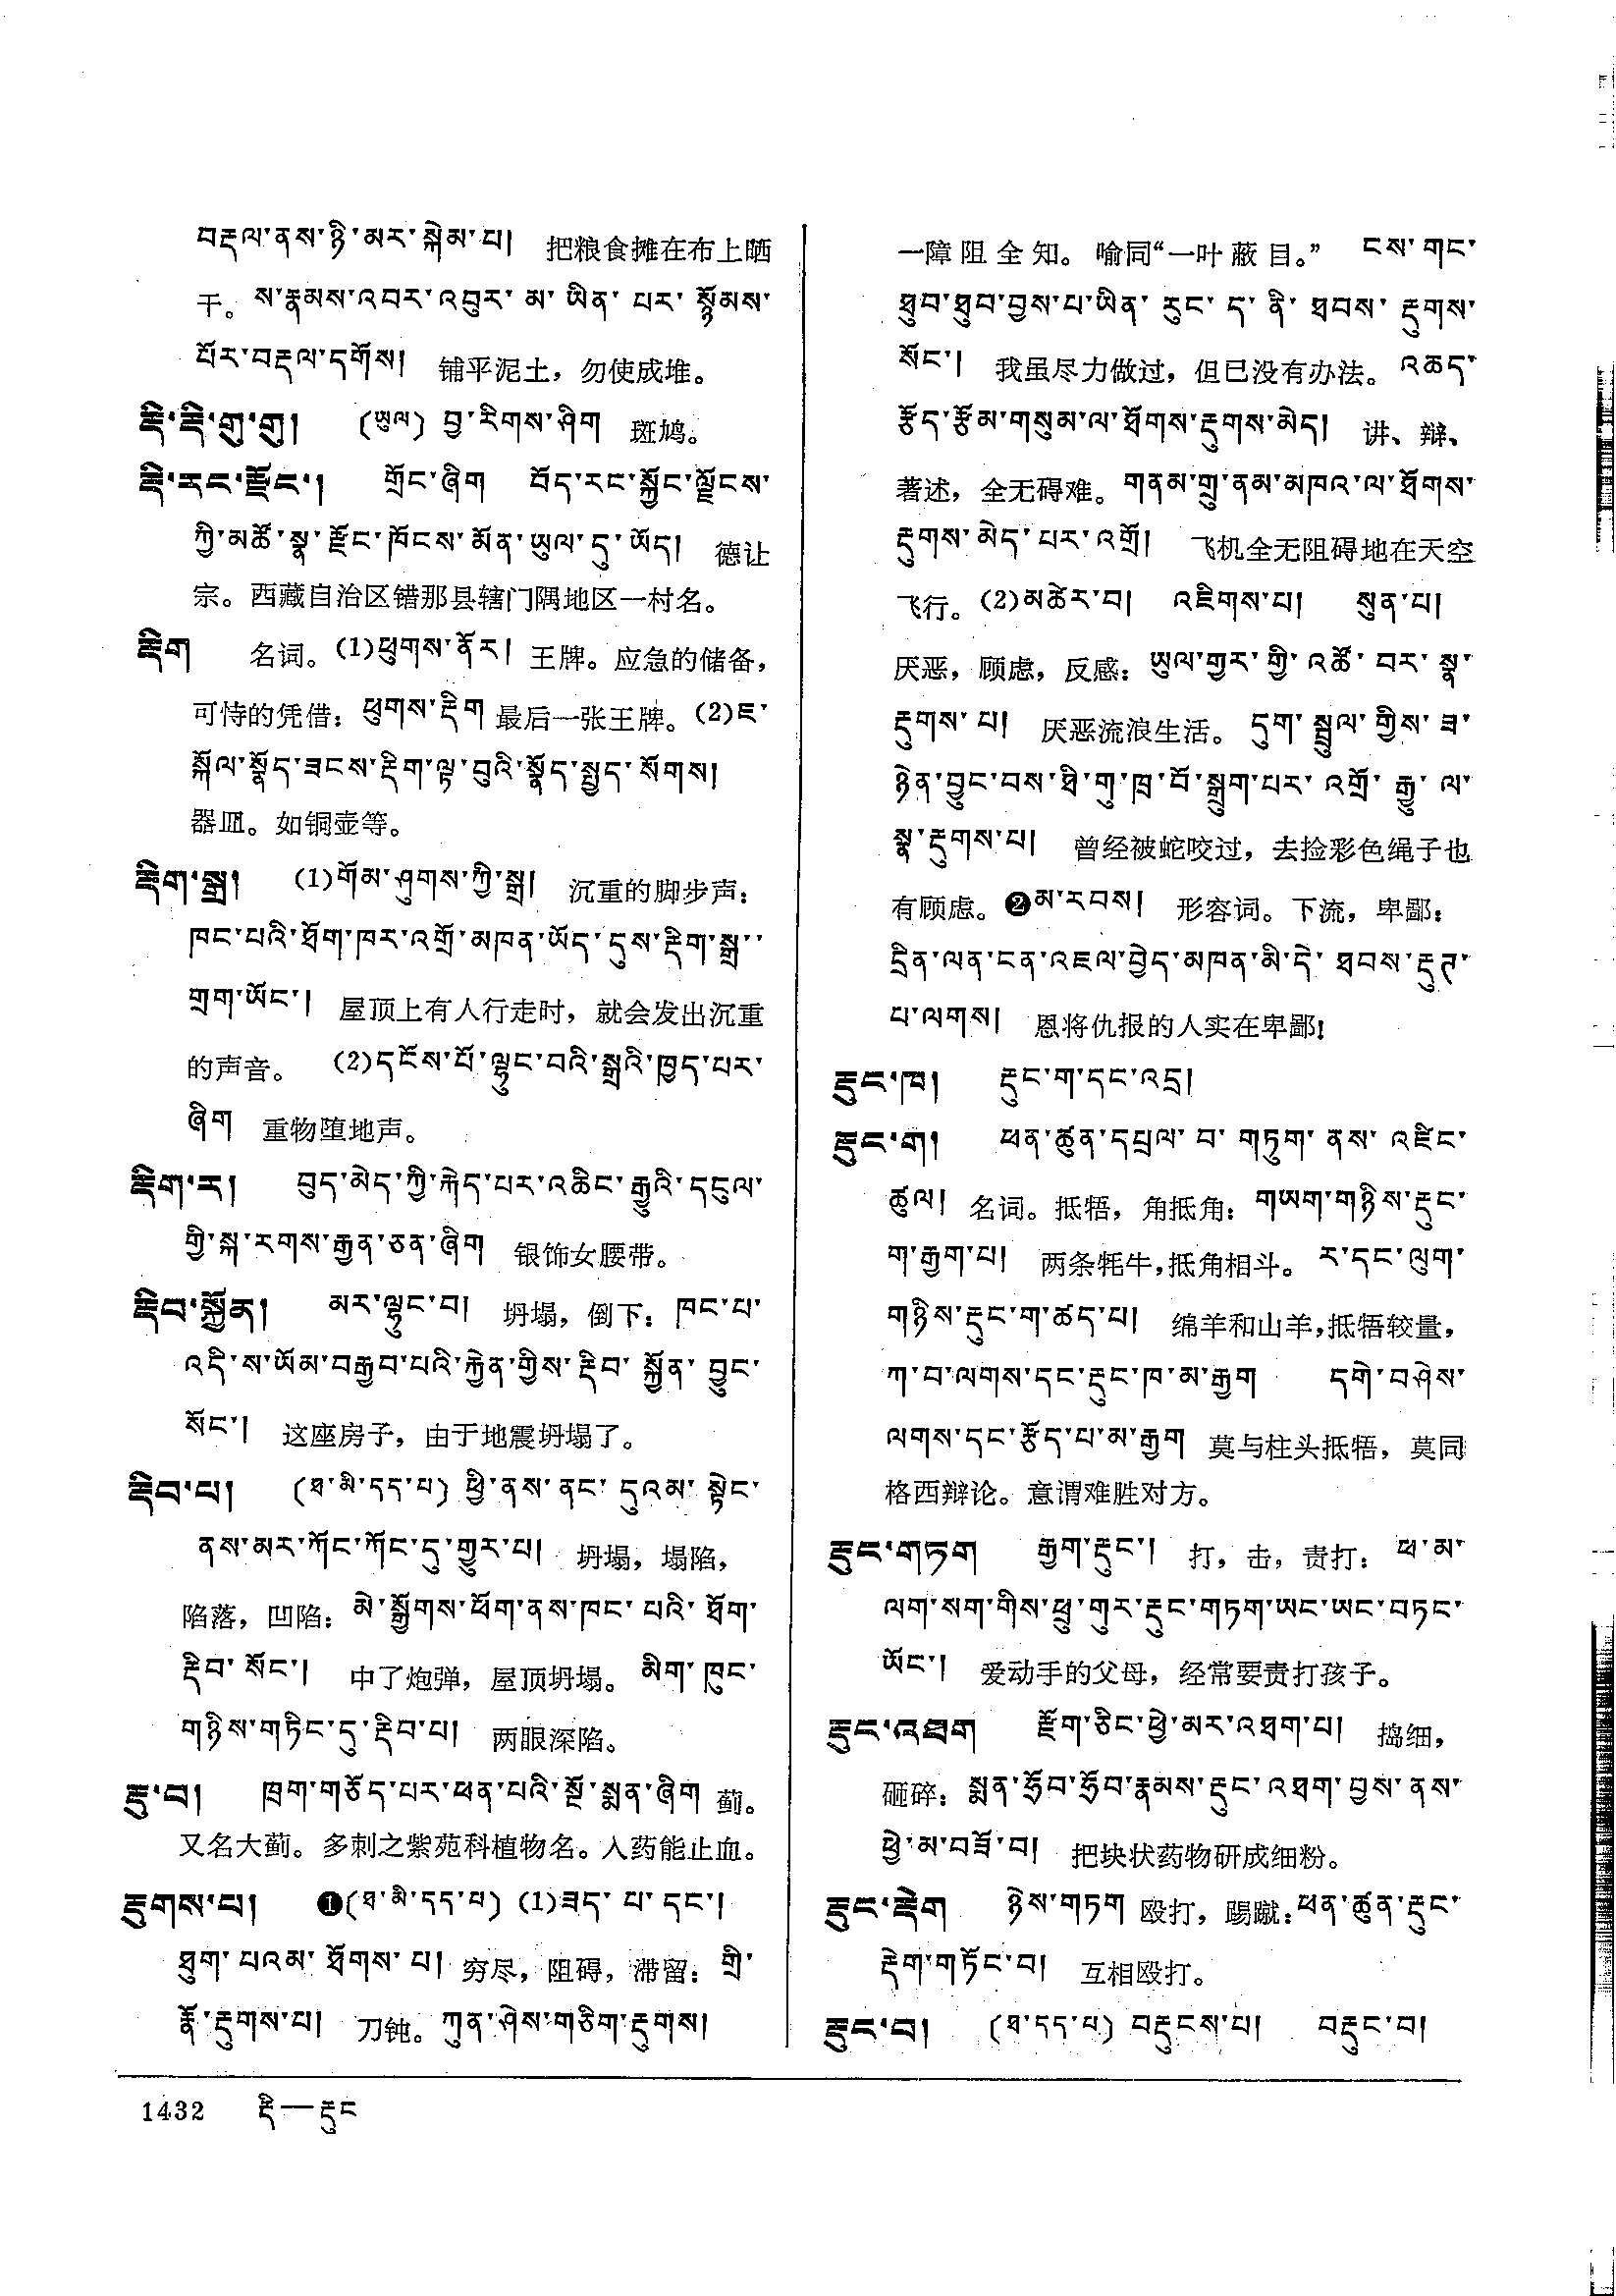 བརྡལ་ནས་ཉི་མར་སྐེམ་པ། 把粮食摊在布上晒
干。ས་རྣམས་འབར་འབུར་མ་ཡིན་པར་སྙོམས་
པོར་བརྡལ་དགོས། 铺平泥土，勿使成堆。
རྡི་རྡི་གུ་གུ། (ཡུལ) བྱ་རིགས་ཤིག 斑鸠。
རྡི་ནང་རྫོང་། གྲོང་ཞིག བོད་རང་སྐྱོང་ལྗོངས་
ཀྱི་མཚོ་སྣ་རྫོང་ཁོངས་མོན་ཡུལ་དུ་ཡོད། 德让
宗。西藏自治区错那县辖门隅地区一村名。
རྡིག 名词。(1)ཕུགས་ནོར། 王牌。应急的储备，
可恃的凭借：ཕུགས་རྡིག 最后一张王牌。(2)ཇ་
སྐོལ་སྣོད་ཟངས་རྡིག་ལྟ་བུའི་སྣོད་སྤྱད་སོགས།
器皿。如铜壶等。
རྡིག་སྒྲ། (1)གོམ་ཤུགས་ཀྱི་སྒྲ། 沉重的脚步声：
ཁང་པའི་ཐོག་ཁར་འགྲོ་མཁན་ཡོད་དུས་རྡིག་སྒྲ་
གྲག་ཡོང་། 屋顶上有人行走时，就会发出沉重
的声音。 (2)དངོས་པོ་ལྷུང་བའི་སྒྲའི་ཁྱད་པར་
ཞིག 重物堕地声。
རྡིག་ར། བུད་མེད་ཀྱི་རྐེད་པར་འཆིང་རྒྱུའི་དངུལ་
གྱི་སྐ་རགས་རྒྱན་ཅན་ཞིག 银饰女腰带。
རྡིབ་སྐྱོན། མར་ལྷུང་བ། 坍塌，倒下：ཁང་པ་
འདི་ས་ཡོམ་བརྒྱབ་པའི་རྐྱེན་གྱིས་རྡིབ་སྐྱོན་བྱུང་
སོང་། 这座房子，由于地震坍塌了。
རྡིབ་པ། (ཐ་མི་དད་པ) ཕྱི་ནས་ནང་དུའམ་སྟེང་
ནས་མར་ཀོང་ཀོང་དུ་གྱུར་པ། 坍塌，塌陷，
陷落，凹陷：མེ་སྒྱོགས་ཕོག་ནས་ཁང་པའི་ཐོག་
རྡིབ་སོང་། 中了炮弹，屋顶坍塌。མིག་ཁུང་
གཉིས་གཏིང་དུ་རྡིབ་པ། 两眼深陷。
རྡུ་བ། ཁྲག་གཅོད་པར་ཕན་པའི་སྔོ་སྨན་ཞིག 蓟。
又名大蓟。多刺之紫苑科植物名。入药能止血。
རྡུགས་པ། ❶(ཐ་མི་དད་པ) (1)ཟད་པ་དང་།
ཐུག་པའམ་ཐོགས་པ། 穷尽，阻碍，滞留：གྲི་
རྣོ་རྡུགས་པ། 刀钝。ཀུན་ཤེས་གཅིག་རྡུགས།
一障阻全知。喻同“一叶蔽目。” ངས་གང་
ཐུབ་ཐུབ་བྱས་པ་ཡིན་རུང་ད་ནི་ཐབས་རྡུགས་
སོང་། 我虽尽力做过，但已没有办法。འཆད་
རྩོད་རྩོམ་གསུམ་ལ་ཐོགས་རྡུགས་མེད། 讲、辩、
著述，全无碍难。གནམ་གྲུ་ནམ་མཁའ་ལ་ཐོགས་
རྡུགས་མེད་པར་འགྲོ། 飞机全无阻碍地在天空
飞行。(2)མཚེར་བ། འཇིགས་པ། སུན་པ།
厌恶，顾虑，反感：ཡུལ་གྱར་གྱི་འཚོ་བར་སྣ་
རྡུགས་པ། 厌恶流浪生活。དུག་སྦྲུལ་གྱིས་ཟ་
ཉེན་བྱུང་བས་ཐི་གུ་ཁྲ་བོ་སྒྲུག་པར་འགྲོ་རྒྱུ་ལ་
སྣ་རྡུགས་པ། 曾经被蛇咬过，去捡彩色绳子也
有顾虑。❷མ་རབས། 形容词。下流，卑鄙：
དྲིན་ལན་ངན་འཇལ་བྱེད་མཁན་མི་དེ་ཐབས་རྡུཊ་
པ་ལགས། 恩将仇报的人实在卑鄙!
རྡུང་ཁ། རྡུང་ག་དང་འདྲ།
རྡུང་ག། ཕན་ཚུན་དཔྲལ་བ་གཏུག་ནས་འཛིང་
ཚུལ། 名词。抵牾，角抵角：གཡག་གཉིས་རྡུང་
ག་རྒྱག་པ། 两条牦牛，抵角相斗。ར་དང་ལུག་
གཉིས་རྡུང་ག་ཚད་པ། 绵羊和山羊，抵牾较量，
ཀ་བ་ལགས་དང་རྡུང་ཁ་མ་རྒྱག དགེ་བཤེས་
ལགས་དང་རྩོད་པ་མ་རྒྱག 莫与柱头抵牾，莫同
格西辩论。意谓难胜对方。
རྡུང་གཏག རྒྱག་རྡུང་། 打，击，责打：ཕ་མ་
ལག་སག་གིས་ཕྲུ་གུར་རྡུང་གཏག་ཡང་ཡང་བཏང་
ཡོང་། 爱动手的父母，经常要责打孩子。
རྡུང་འཐག རྫོག་ཅིང་ཕྱེ་མར་འཐག་པ། 捣细，
砸碎：སྨན་ཧྲོབ་ཧྲོབ་རྣམས་རྡུང་འཐག་བྱས་ནས་
ཕྱེ་མ་བཟོ་བ། 把块状药物研成细粉。
རྡུང་རྡེག ཉེས་གཏག 殴打，踢蹴：ཕན་ཚུན་རྡུང་
རྡེག་གཏོང་བ། 互相殴打。
རྡུང་བ། (ཐ་དད་པ) བརྡུངས་པ། བརྡུང་བ།
1432 རྡི—རྡུང